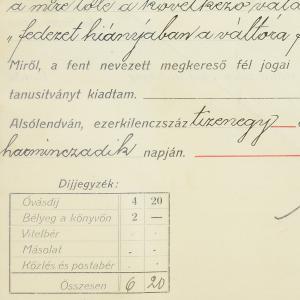 a mire tőle a következő vála
„fedezet hiányában a váltóra
Miről, a fent nevezett megkereső fél jogai
tanusitványt kiadtam.
Alsólendván, ezerkilenczszáz tizenegy
harminczadik napján.
Díjjegyzék:
Óvásdíj 4 20
Bélyeg a könyvön 2 —
Vitelbér . .
Másolat . .
Közlés és postabér . .
Összesen 6 20